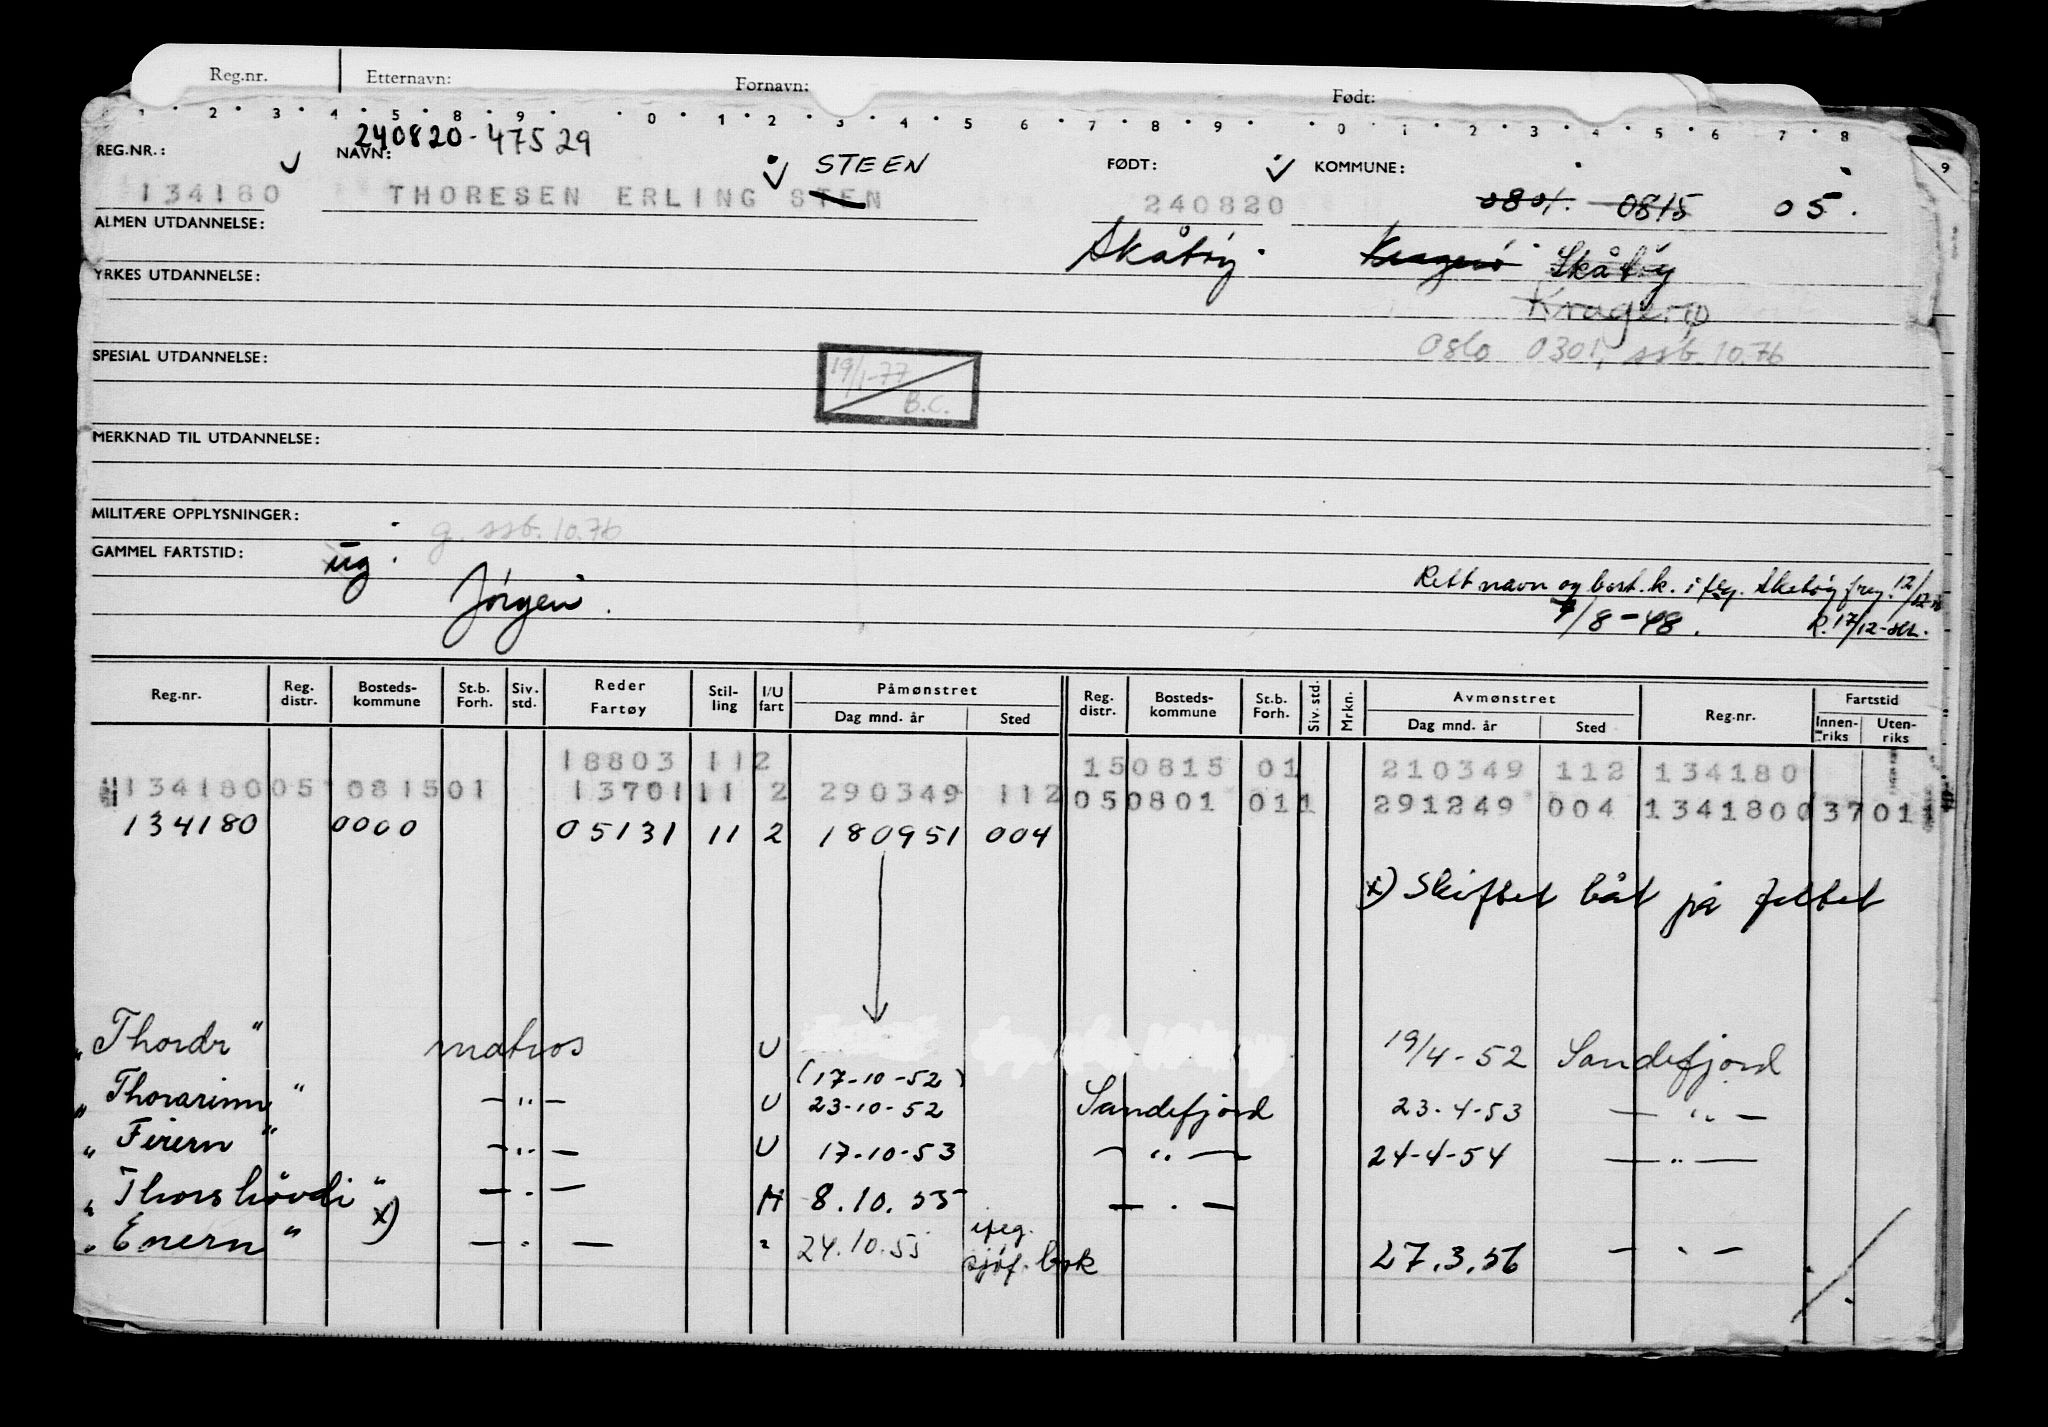 Reg.nr. Etternavn: Fornavn: Født:
1 2 3 4 5 8 9 0 1 2 3 4 5 6 7 8 9 0 1 2 3 4 5 6 7 8 9
240820-47529
REG.NR.: NAVN: STEEN FØDT: KOMMUNE:
134180 THORESEN ERLING STEN 240820 0801. 0815 05.
ALMEN UTDANNELSE: Skåtøy Kragerø Skåtøy
YRKES UTDANNELSE:
Kragerø
Oslo 0301, ssb. 10.76
SPESIAL UTDANNELSE:
19/1-77
B.C.
MERKNAD TIL UTDANNELSE:
MILITÆRE OPPLYSNINGER:
g. ssb. 10.76
GAMMEL FARTSTID: ug.
Jørgen.
Rett navn og bost.k. i flg. Skåtøy freg. 12/12
/8-48. R. 17/12-
Reg.nr. Reg. distr. Bosteds-kommune St.b. Forh. Siv. std. Reder Fartøy Stil-ling I/U fart Påmønstret Dag mnd. år Sted Reg. distr. Bosteds-kommune St.b. Forh. Siv. std. Mrkn. Avmønstret Dag mnd. år Sted Reg.nr. Fartstid Innen-riks Uten-riks
18803 112 150815 01 210349 112 134180
134180 05 0815 01 13701 11 2 290349 112 050801 011 291249 004 134180 037011
134180 0000 05131 11 2 180951 004
x) Skiftet båt på feltet
"Thordr" matros U 19/4-52 Sandefjord
(17-10-52)
"Thorarinn" -"- U 23-10-52 Sandefjord 23-4-53 -"-
"Feiern" -"- U 17-10-53 -"- 24-4-54 -"-
"Thorshövdi" -"- 8.10.55 -"-
x)
"Enern" -"- " 24.10.55 ifeg. sjöf. bok 27.3.56 -"-